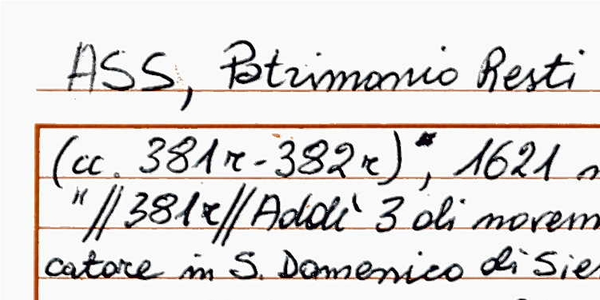 ASS, Patrimonio Resti
(cc. 381r-382r)*, 1621 n
"//381r//Addì 3 di novem
catore in S. Domenico di Sie